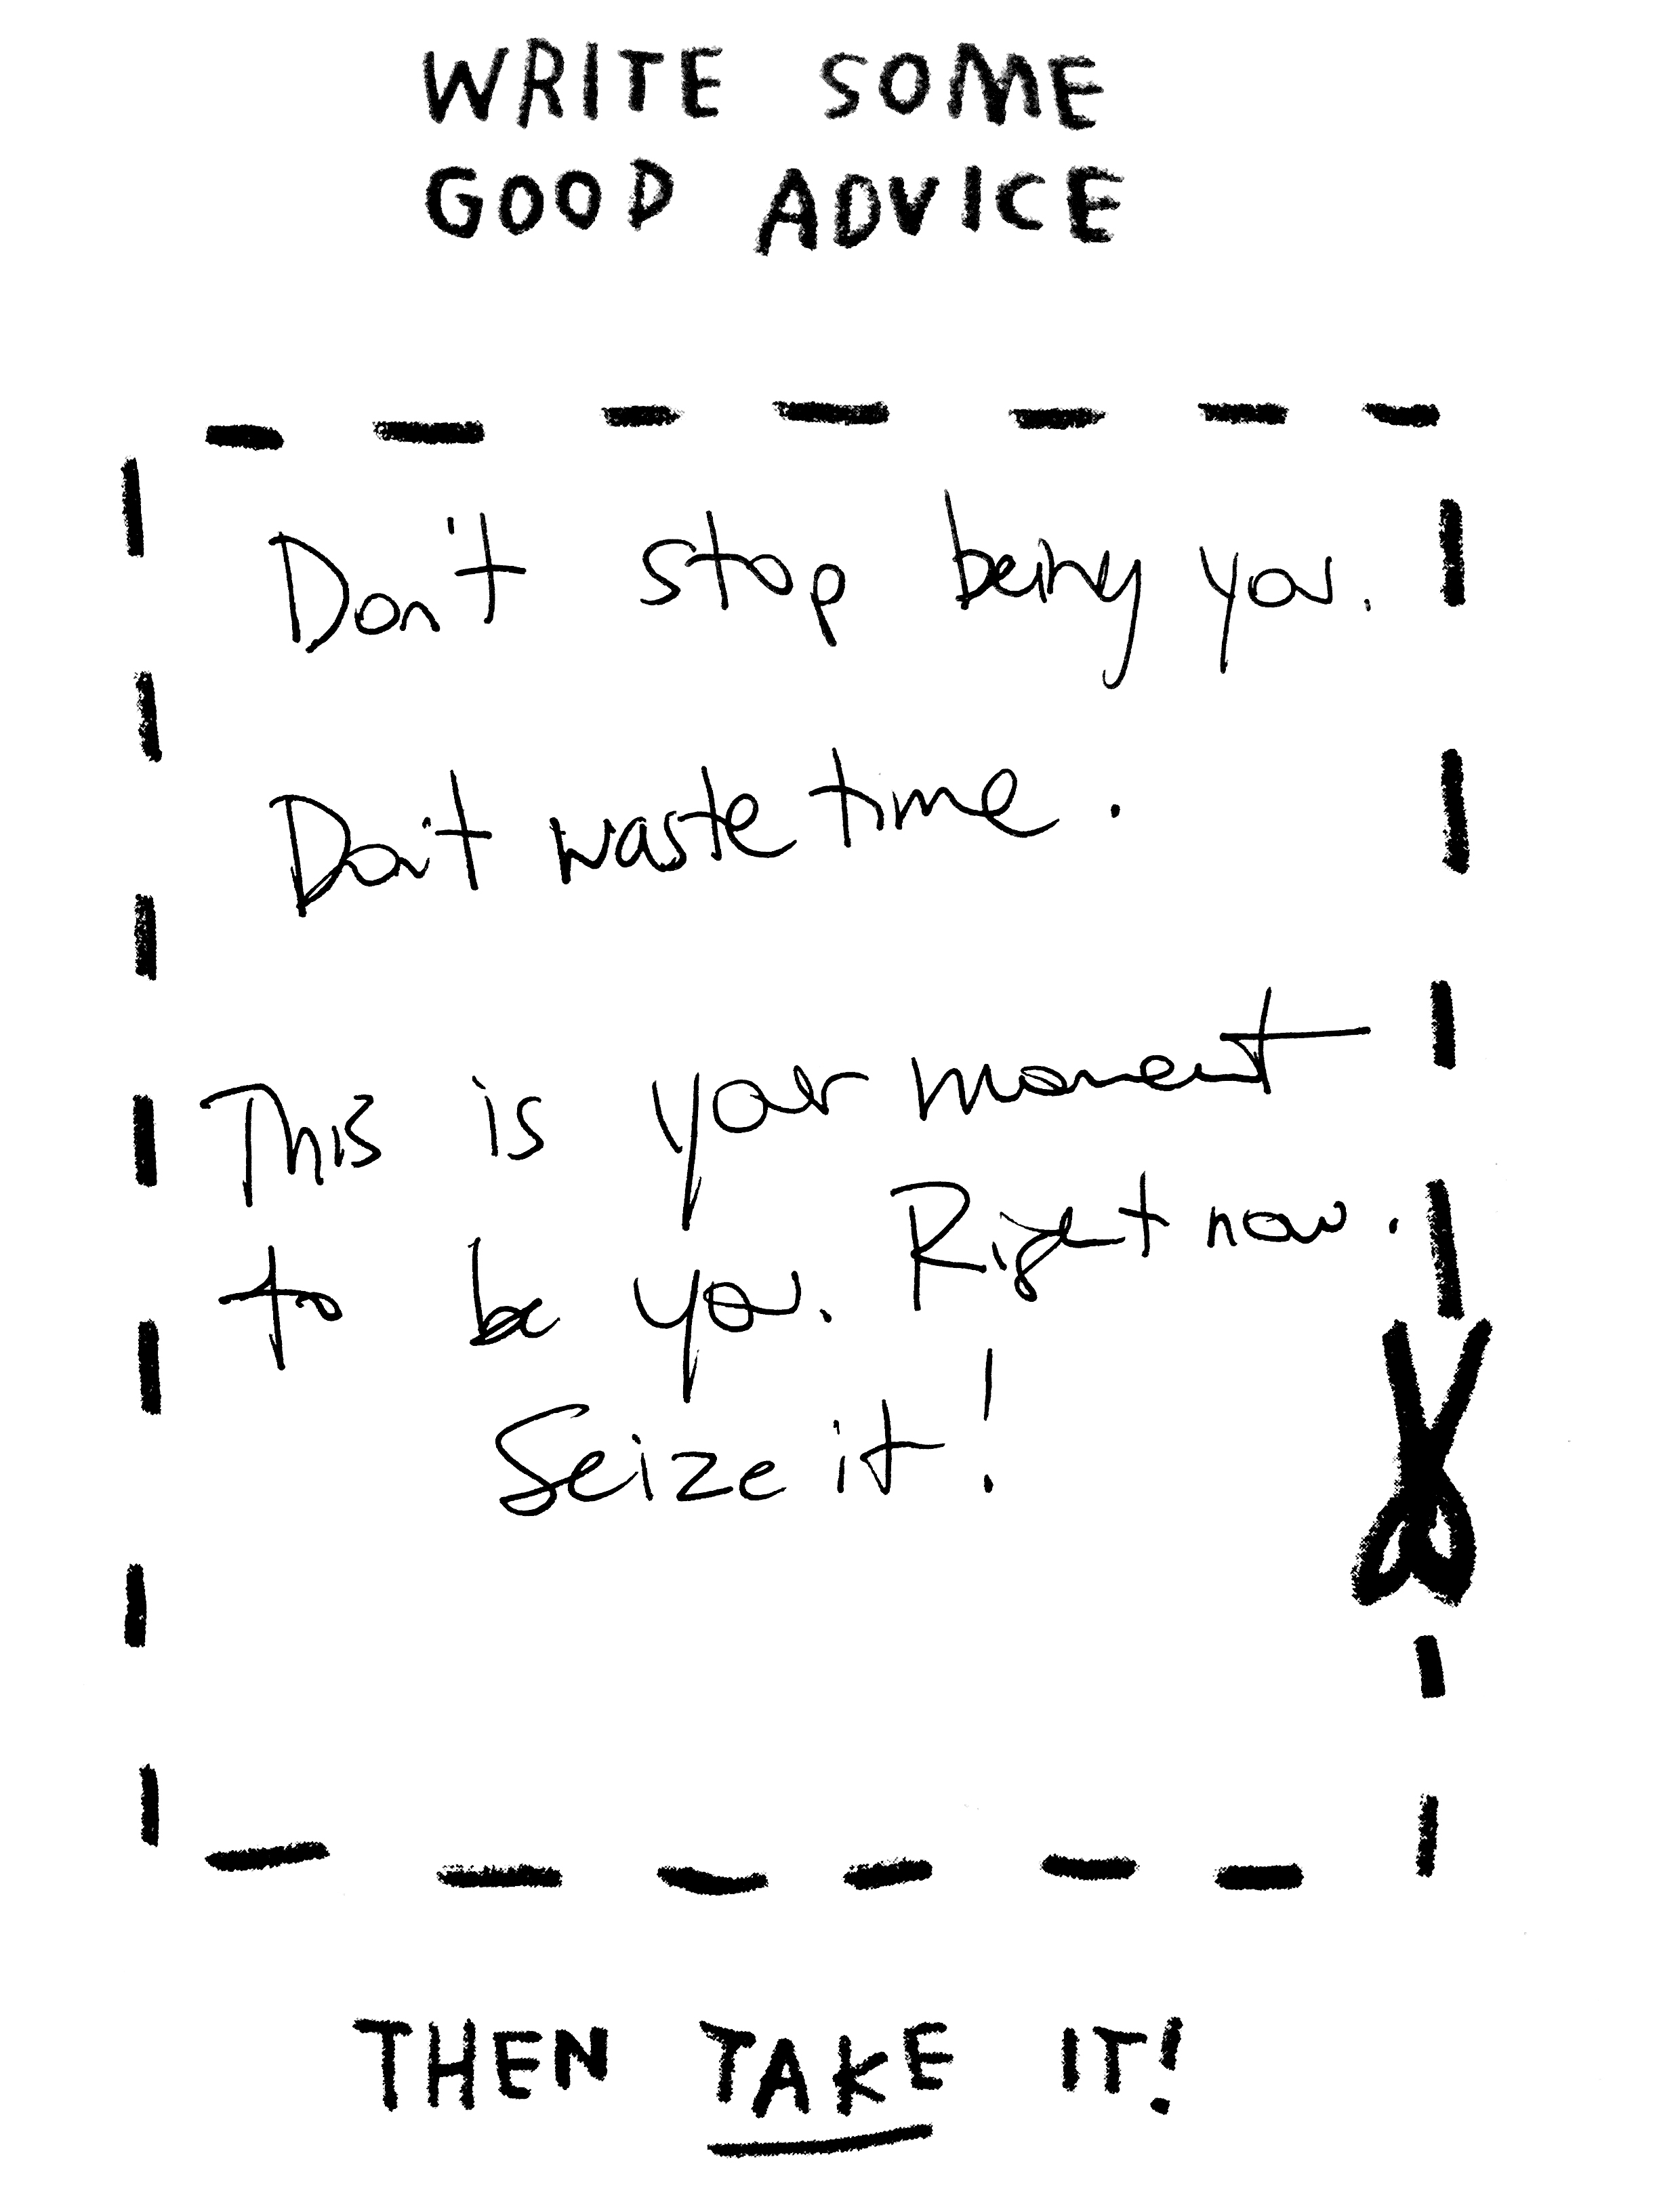 WRITE SOME
GOOD ADVICE
Don't stop being you.
Don't waste time.
This is your moment
to be you. Right now.
Seize it!
THEN TAKE IT!